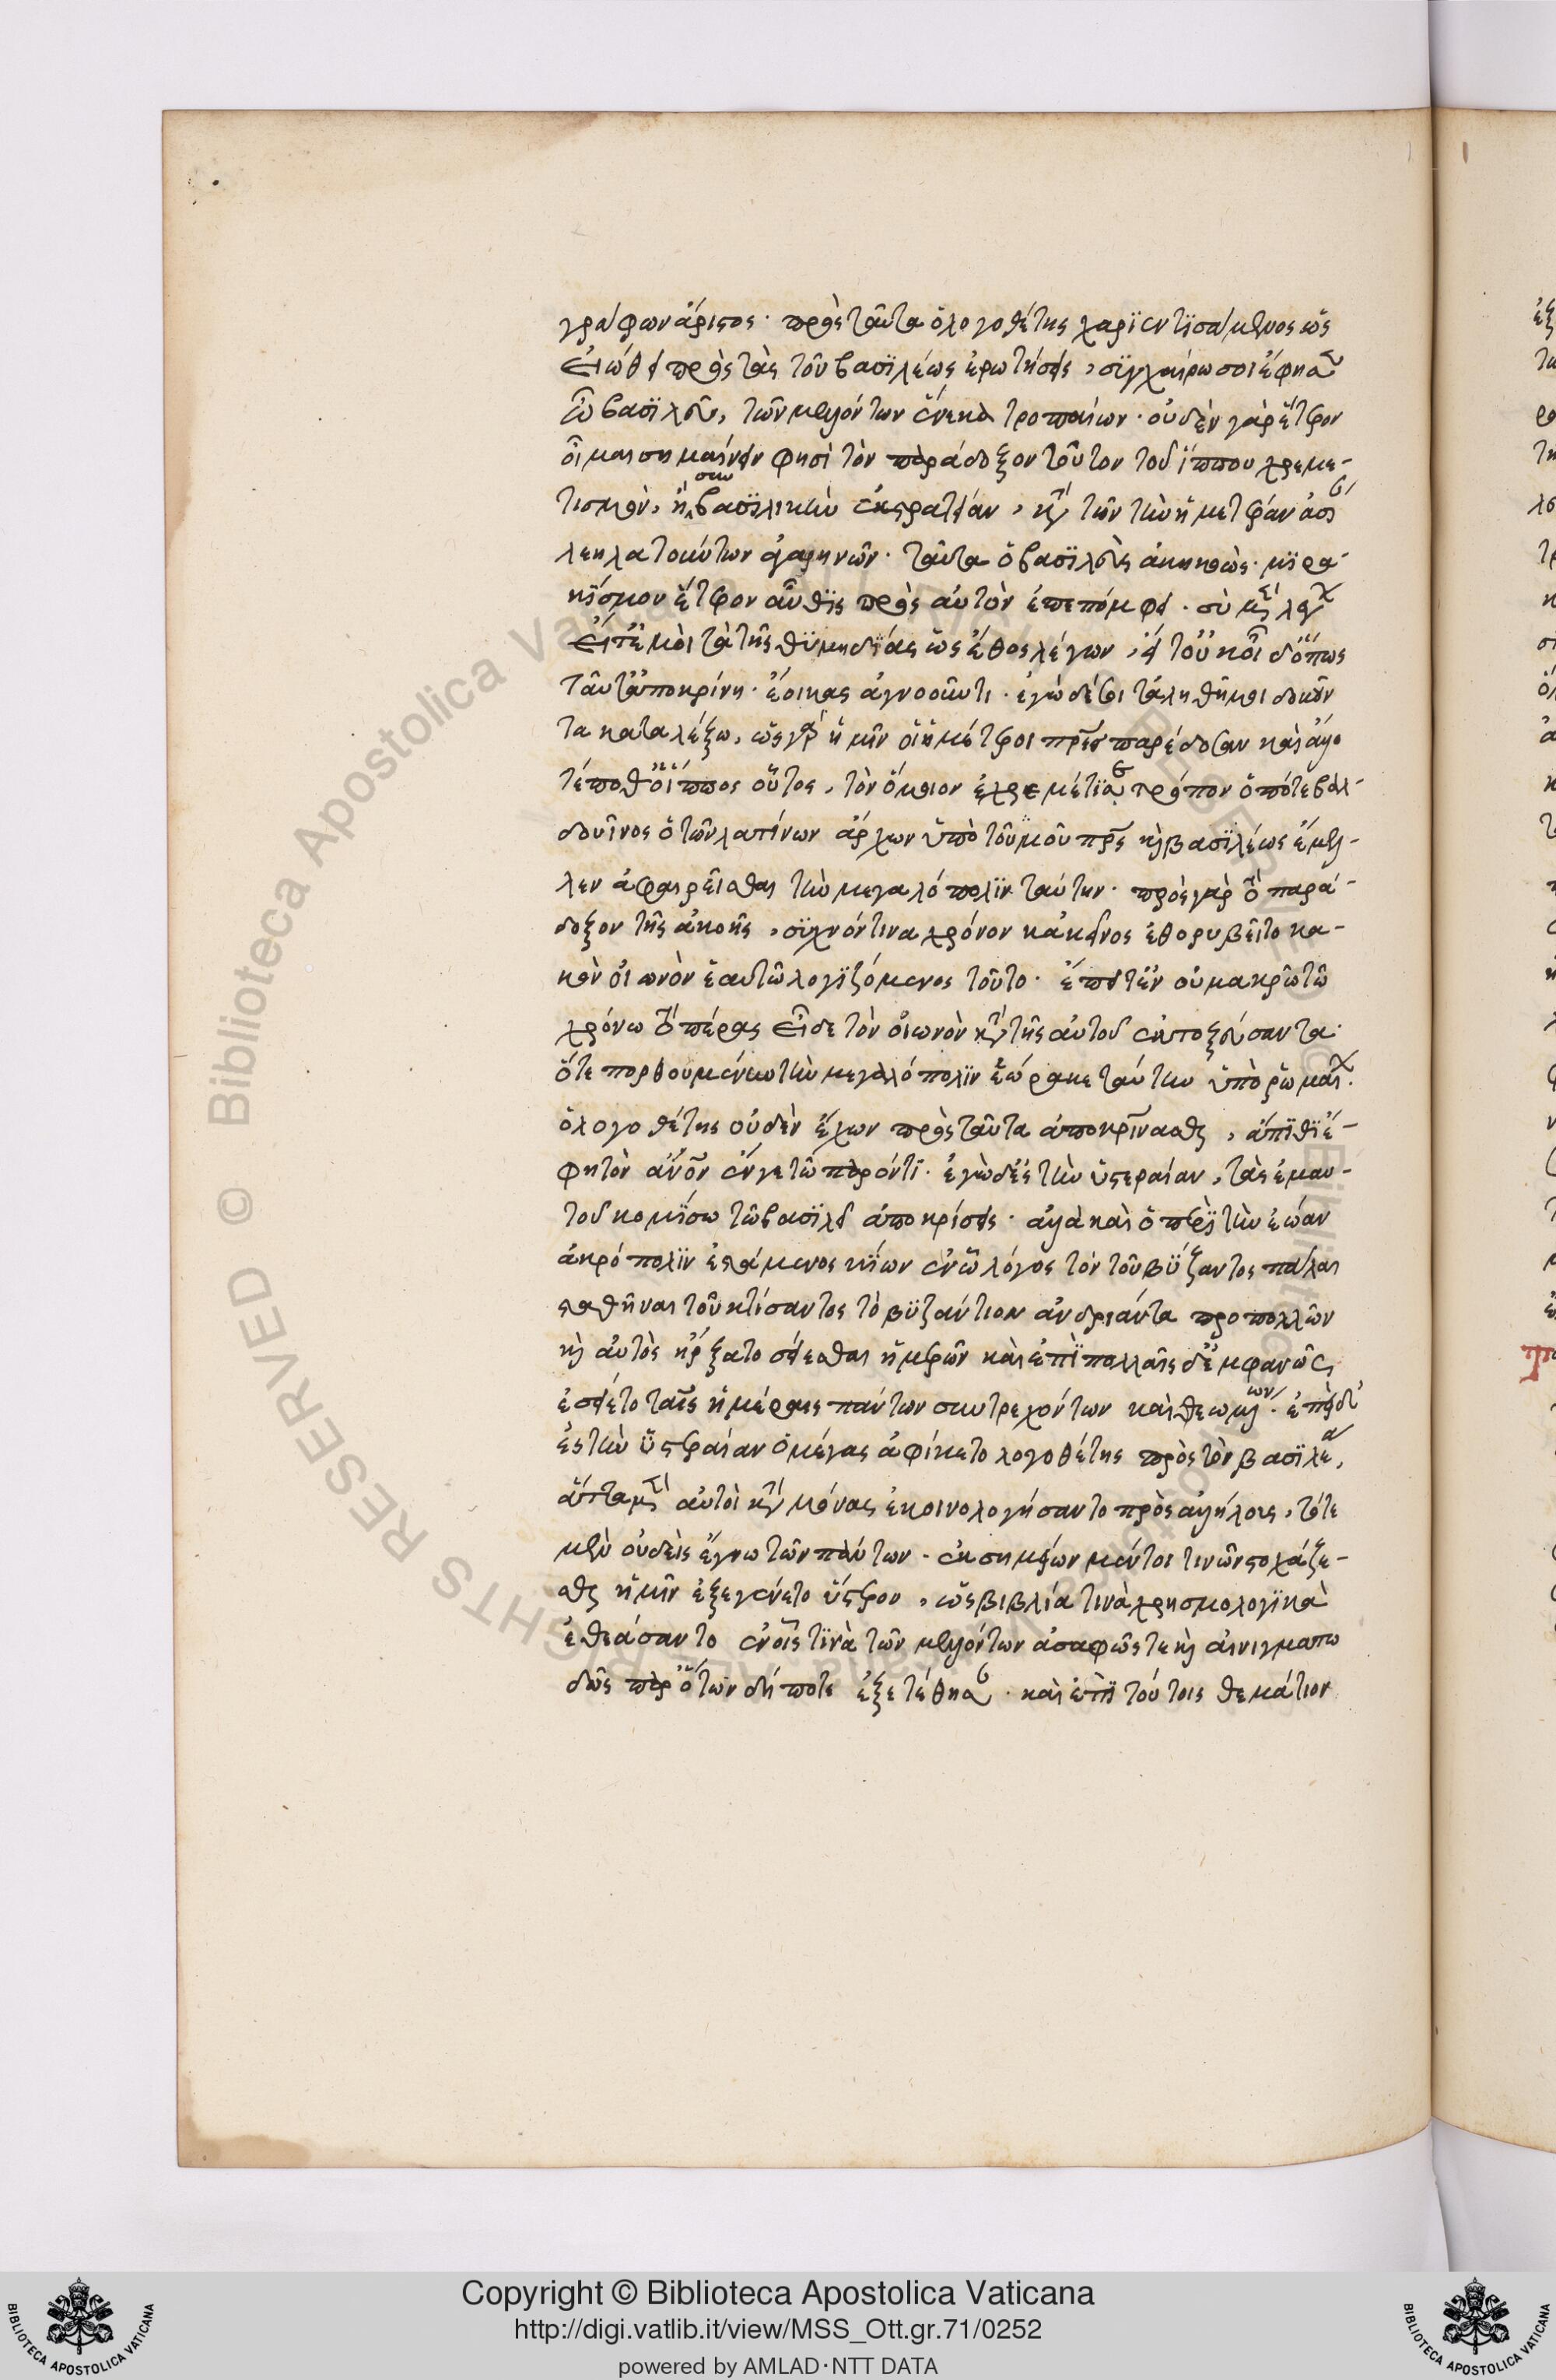 γράφων ἄριστος· πρὸς ταῦτα ὁ λογοθέτης χαριεντισάμενος ὡς
εἰώθει πρὸς τὰς τοῦ βασϊλέως ἐρωτήσεις, σϊγχαίρω σοι ἔφησεν
ὦ βασϊλεῦ, τῶν μελλόντων ἕνεκα τροπαίων· οὐδὲν γὰρ ἕτερον
οἶμαι σημαίνειν φησὶ τὸν παράδοξον τοῦτον τοῦ ἵππου χρεμε-
τισμὸν, ἢ σὴν βασϊλικὴν ἐκστρατείαν, κατὰ τῶν τὴν ἡμετέραν ἀσί
λεηλατούντων ἀγαρηνῶν· ταῦτα ὁ βασϊλεὺς ἀκηκοὼς· μϊρα-
κΐσμον ἕτερον αὖθϊς πρὸς αὐτὸν ἐπεπόμφει· σὺ μὲν λογ
εἶπέ μοι τὰ τῆς θϋμηδΐας ὡς ἔθος λέγων, εἴτ' οὐκ οἶδ' ὅπως
ταῦτ' ἀποκρίνῃ· ἔοικας ἀγνοοῦντι· ἐγὼ δέ σοι τἀληθῆ μοι δοκοῦν
τα καταλέξω, ὡς γὰρ ἡμῖν οἱ ἡμέτεροι πρεσ παρέδοσαν καὶ ἄλλο
τέ ποθ' ὁ ἵππος οὗτος, τὸν ὅμοιον ἐχρεμέτϊσε τρόπον ὁπότε βαλ-
δουῖνος ὁ τῶν λατίνων ἄρχων ὑπὸ τοῦ μοῦ πρς καὶ βασϊλέως ἔμελ-
λεν ἀφαιρεῖσθαι τὴν μεγαλόπολϊν ταύτην· πρὸς γὰρ τὸ παρά-
δοξον τῆς ἀκοῆς, σϊχνόν τινα χρόνον κἀκεῖνος ἐθορυβεῖτο κα-
κὸν οἰωνὸν ἑαυτῶ λογϊζόμενος τοῦτο· ἔπειτ' ἐν οὐ μακρῶ τῶ
χρόνω τὸ πέρας εἶδε τὸν οἰωνὸν κατὰ τῆς αὐτοῦ ἐκτοξεύσαντα·
ὅτε πορθουμένην τὴν μεγαλόπολϊν ἑώρακε ταύτην ὑπὸ ῥωμαί.
ὁ λογοθέτης οὐδὲν ἔχων πρὸς ταῦτα ἀποκρίνασθαι, ἄπϊθϊ ἔ-
φη τὸν ἄνον ἔν γε τῶ παρόντϊ· ἐγὼ δ' ἐς τὴν ὑστεραίαν, τὰς ἐμαυ-
τοῦ κομΐσω τῶ βασϊλεῖ ἀποκρίσεις· ἀλλὰ καὶ ὁ περϊ τὴν ἑώαν
ἀκρόπολϊν ἑστάμενος κΐων ἐν ὧ λόγος τὸν τοῦ βΰζαντος πάλαι
σταθῆναι τοῦ κτίσαντος τὸ βϋζάντιον ἀνδριάντα προπολλῶν
καὶ αὐτὸς ἤρξατο σείεσθαι ἡμερῶν καὶ ἐπϊ πολλαῖς δ' ἐμφανῶς
ἐσείετο ταῖς ἡμέραις πάντων συντρεχόντων καὶ θεωμένων· ἐπεὶ δ'
ἐς τὴν ὑστεραίαν ὁ μέγας ἀφίκετο λογοθέτης πρὸς τὸν βασϊλέα,
ἅττα μὲν αὐτοὶ κατὰ μόνας ἐκοινολογήσαντο πρὸς ἀλλήλους, τότε
μὲν οὐδεὶς ἔγνω τῶν πάντων· ἐκ σημείων μέντοι τινῶν στοχάζε-
σθαι ἡμῖν ἐξεγένετο ὕστερον, ὡς βιβλία τινὰ χρησμολογϊκὰ
ἐθεάσαντο ἐν οἷς τϊνὰ τῶν μελλόντων ἀσαφῶς τε καὶ αἰνιγματω
δῶς παρ' ὅτων δήποτε ἐξετέθησαν· καὶ ἐπὶ τούτοις θεμάτιον
Copyright © Biblioteca Apostolica Vaticana
http://digi.vatlib.it/view/MSS_Ott.gr.71/0252
powered by AMLAD·NTT DATA